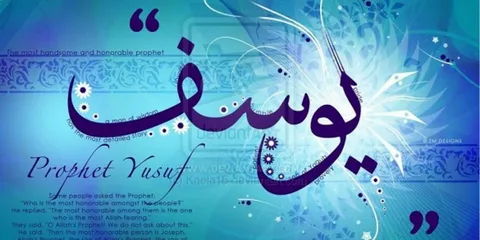 The most handsome and honorable prophet
يوسف
a man of wisdom
the most detailed story
Prophet Yusuf
© ZM DESIGNS
Some people asked the Prophet:
"Who is the most honorable amongst the people?"
He replied, "The most honorable among them is the one
who is the most Allah-fearing."
They said, "O Allah's Prophet! We do not ask about this."
He said, "Then the most honorable person is Joseph,